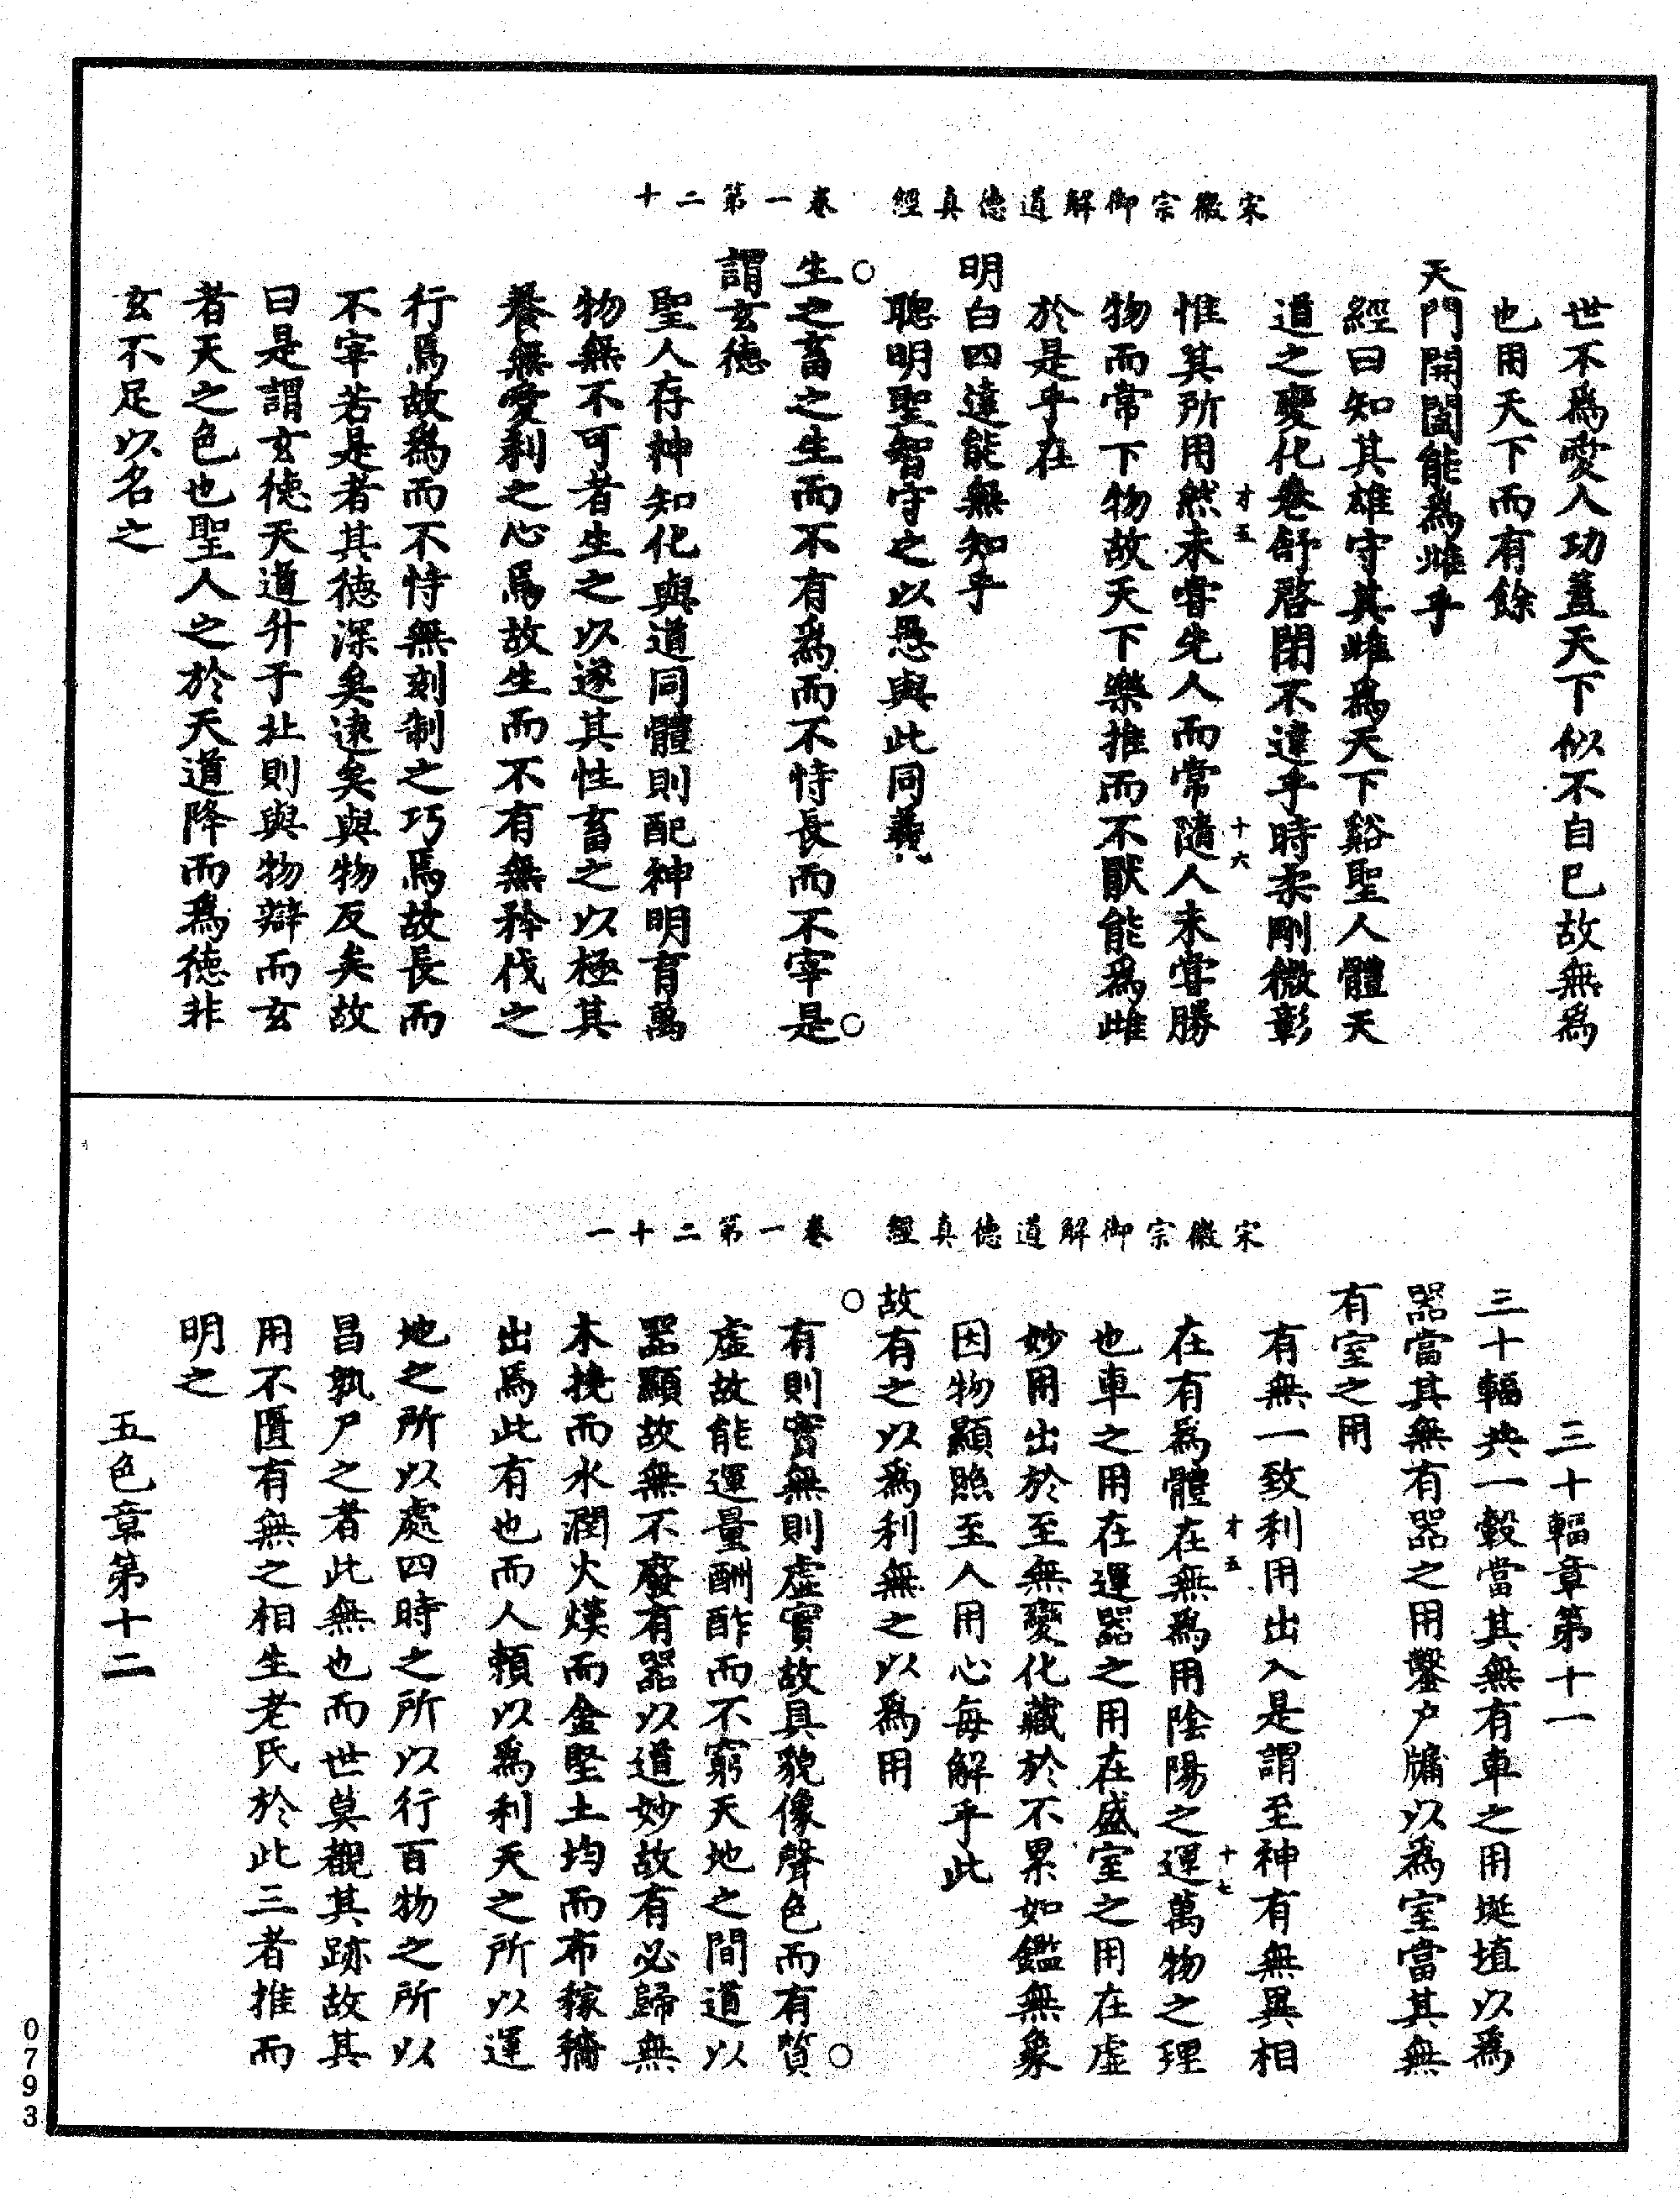 宋徽宗御解道德真經　卷一第二十
世不爲愛人功蓋天下似不自已故無爲
也用天下而有餘
天門開闔能爲雌乎
經曰知其雄守其雌爲天下谿聖人體天
道之變化卷舒啓閉不違乎時柔剛微彰
惟其所用然未嘗先人而常隨人未嘗勝
才五　十六
物而常下物故天下樂推而不猒能爲雌
於是乎在
明白四達能無知乎
聰明聖智守之以愚與此同義
生之畜之生而不有爲而不恃長而不宰是
謂玄德
聖人存神知化與道同體則配神明育萬
物無不可者生之以遂其性畜之以極其
養無愛利之心焉故生而不有無矜伐之
行焉故爲而不恃無刻制之巧焉故長而
不宰若是者其德深矣遠矣與物反矣故
曰是謂玄德天道升于北則與物辯而玄
者天之色也聖人之於天道降而爲德非
玄不足以名之
宋徽宗御解道德真經　卷一第二十一
三十輻章第十一
三十輻共一轂當其無有車之用埏埴以爲
器當其無有器之用鑿户牖以爲室當其無
有室之用
有無一致利用出入是謂至神有無異相
在有爲體在無爲用陰陽之運萬物之理
才五　十七
也車之用在運器之用在盛室之用在虛
妙用出於至無變化藏於不累如鑑無象
因物顯照至人用心每解乎此
故有之以爲利無之以爲用
有則實無則虛實故具貌像聲色而有質
虛故能運量酬酢而不窮天地之間道以
器顯故無不廢有器以道妙故有必歸無
木撓而水潤火熯而金堅土均而布稼穡
出焉此有也而人賴以爲利天之所以運
地之所以處四時之所以行百物之所以
昌孰尸之者此無也而世莫覩其跡故其
用不匱有無之相生老氏於此三者推而
明之
五色章第十二
0793